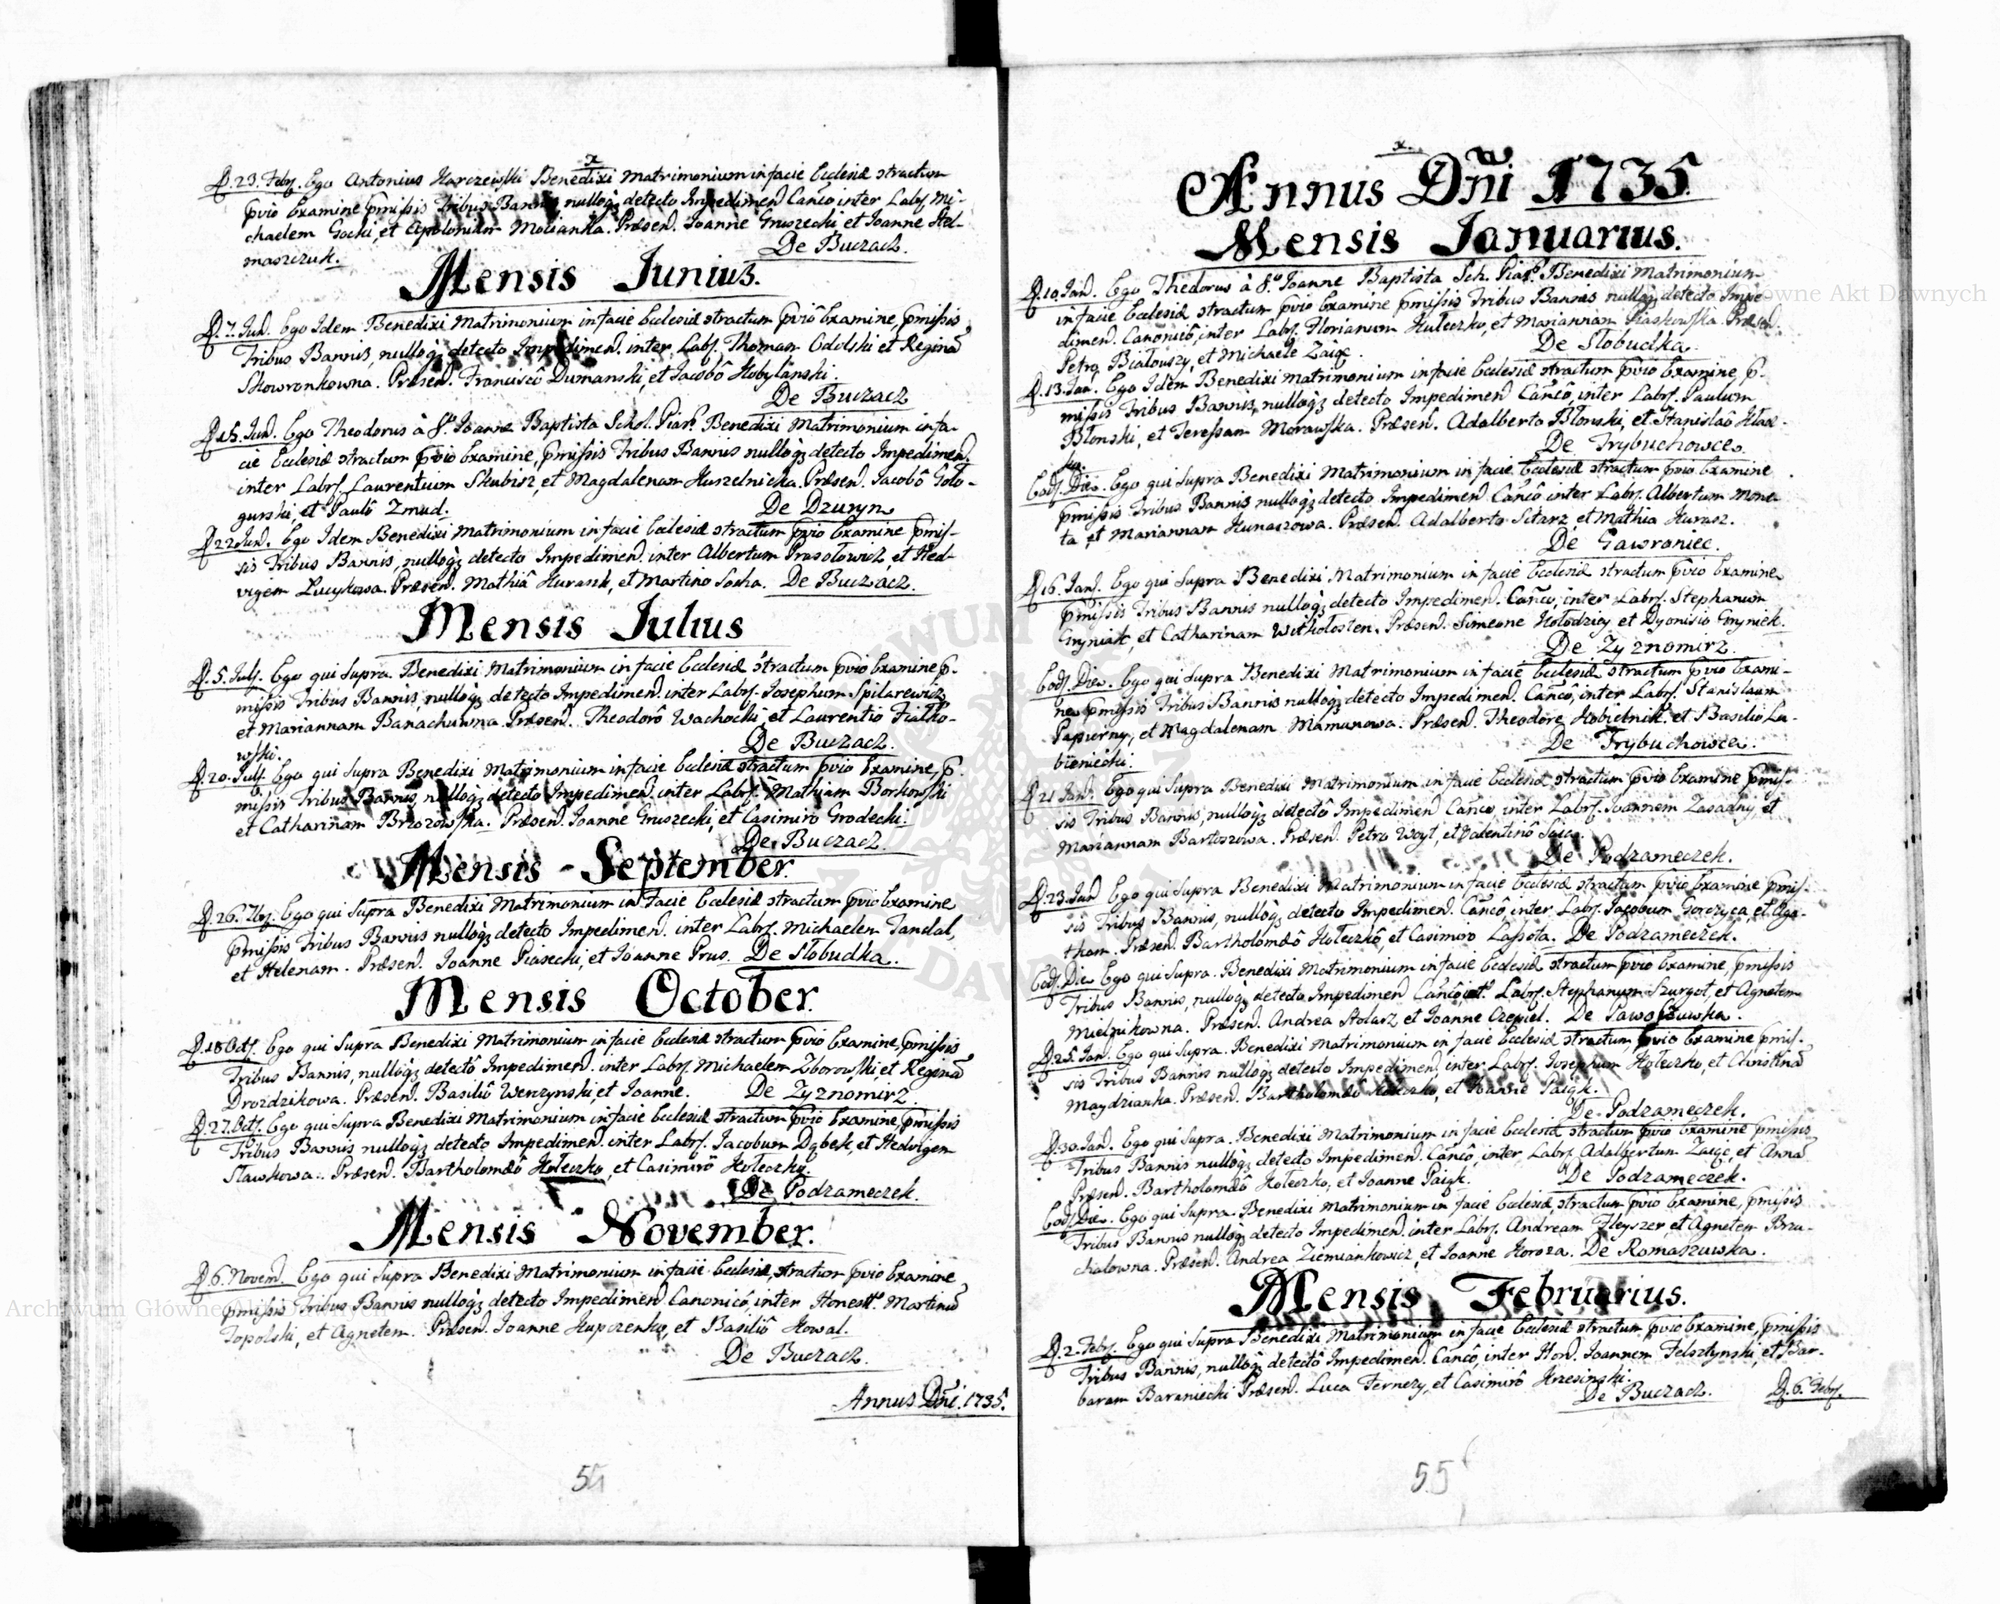 D. 23. Febr. Ego Antonius Karczewski Benedixi Matrimonium in facie Ecclesiæ stractum
pvio Examine pmissis Tribus Bannis nulloq detecto Impedimen Canco inter Labs Mi-
chaelem Gocki, et Apoloniam Mocianka. Præsen. Joanne Gruszecki et Joanne Hel-
maszczuk.
De Buczacz.
Mensis Junius.
D. 7. Jun. Ego Idem Benedixi Matrimonium in facie Ecclesiæ stractum pvio Examine, pmissis
Tribus Bannis, nulloq detecto Impedimen. inter Labs. Thomam Odolski et Regina
Skowronkowna. Præsen. Francisco Dumanski, et Jacobô Kobylanski.
De Buczacz
Jun. Ego Theodorus à S. Joanne Baptista Schol. Piar. Benedixi Matrimonium in fa-
cie Ecclesiæ stractum pvio Examine, pmissis Tribus Bannis nulloq detecto Impedimen.
inter Labs. Laurentium Skubisz, et Magdalenam Huszelnicka. Præsen. Jacobô Goło-
gurski, et Paulô Zmud.
De Dzuryn
D. 22 Jun. Ego Idem Benedixi Matrimonium in facie Ecclesiæ stractum pvio Examine pmis-
sis Tribus Bannis, nulloq detecto Impedimen. inter Albertum Prasołowicz, et Hed-
vigem Łucykowa. Præsen. Mathiâ Hurank, et Martino Socha. De Buczacz.
Mensis Julius
D. 5. Julj. Ego qui Supra Benedixi Matrimonium in facie Ecclesiæ stractum pvio Examine p-
missis Tribus Bannis, nulloq detecto Impedimen. inter Labs. Josephum Spilarewicz
et Mariannam Banachuwna. Præsen. Theodorô Wachocki, et Laurentio Fialko-
wski.
De Buczacz.
D. 20. Julj. Ego qui Supra Benedixi Matrimonium in facie Ecclesiæ stractum pvio Examine, p-
missis Tribus Bannis, nulloq detecto Impedimen. inter Labs. Mathiam Borkowski
et Catharinam Brzozowska. Præsen. Joanne Gruszecki, et Casimiro Grodecki.
De Buczacz.
Mensis September.
D. 26. 7br. Ego qui Supra Benedixi Matrimonium in facie Ecclesiæ stractum pvio Examine
pmissis Tribus Bannis nulloq detecto Impedimen. inter Labs. Michaelem Tandal,
et Helenam. Præsen. Joanne Piasecki, et Joanne Prus. De Slobudka.
Mensis October.
D. 18 Octs. Ego qui Supra Benedixi Matrimonium in facie Ecclesiæ stractum pvio Examine, pmissis
Tribus Bannis, nulloq detectô Impedimen. inter Labs. Michaelem Zborowski, et Regina
Drozdzikowa. Præsen. Basiliô Werzynski et Joanne. De Zyznomirz.
D. 27. Octs. Ego qui Supra Benedixi Matrimonium in facie Ecclesiæ stractum pvio Examine, pmissis
Tribus Bannis, nulloq detecto Impedimen. inter Labs. Jacobum Dąbek, et Hedvigem
Slawkowa. Præsen. Bartholomæô Hołeczko, et Casimirô Hołeczko.
De Podzameczek.
Mensis November.
D. 6. Novem. Ego qui Supra Benedixi Matrimonium in facie Ecclesiæ, stractum pvio Examine
pmissis Tribus Bannis nulloq detecto Impedimen Canonicô, inter Honest. Martinu
Topolski, et Agnetem. Præsen. Joanne Hupczenko, et Basiliô Kowal.
De Buczacz.
Annus Dni. 1735.
54
Annus Dni 1735.
Mensis Januarius.
D. 10. Jan. Ego Thedorus à S. Joanne Baptista Sch. Piar. Benedixi Matrimonium
in facie Ecclesiæ stractum pvio Examine pmissis Tribus Bannis nulloq detecto Impe-
dimen. Canonicô, inter Labs. Florianum Huleczko, et Mariannam Piaskowska. Præsen.
Petro Białouszy, et Michaele Zaigc.
De Slobudka.
D. 13. Jan. Ego Idem Benedixi Matrimonium in facie Ecclesiæ stractum pvio Examine, p-
missis Tribus Bannis, nulloq detecto Impedimen Cancô, inter Labs. Paulum
Błonski, et Teressam Morawska. Præsen. Adalberto Błonski, et Stanislaô Hład-
ki.
De Trybuchowce.
Eod. Die. Ego qui Supra Benedixi Matrimonium in facie Ecclesiæ stractum pvio Examine
pmissis Tribus Bannis nulloq detecto Impedimen Cancô inter Labs. Albertum Mone-
ta, et Mariannam Hunaszowa. Præsen. Adalberto Sitarz, et Mathia Hurasz.
De Gawroniec.
D. 16. Jan. Ego qui Supra Benedixi Matrimonium in facie Ecclesiæ stractum pvio Examine
pmissis Tribus Bannis nulloq detecto Impedimen. Canco, inter Labs. Stephanum
Gryniak, et Catharinam Witkosten. Præsen. Simeone Hołodziey et Dyonisio Gryniek.
De Zyznomirz.
Eod. Die. Ego qui Supra Benedixi Matrimonium in facie Ecclesiæ stractum pvio Exami-
ne, pmissis Tribus Bannis nulloq detecto Impedimen. Cancô, inter Labs. Stanislaum
Papierny, et Magdalenam Mamunowa. Præsen. Theodore Kobielnik et Basilio Lu-
bieniecki.
De Trybuchowce.
D. 21 Jan. Ego qui Supra Benedixi Matrimonium in facie Ecclesiæ stractum pvio Examine pmis-
sis Tribus Bannis, nulloq detectô Impedimen Cancô, inter Labs. Joannem Zasadny, et
Mariannam Bartoszowa. Præsen. Petro Woyt, et Valentinô
De Podzameczek.
D. 23. Jan Ego qui Supra Benedixi Matrimonium in facie Ecclesiæ stractum pvio Examine pmis-
sis Tribus Bannis, nulloq detecto Impedimen. Cancô, inter Labs. Jacobum Gorczyca, et Aga-
tham. Præsen. Bartholomæô Hołeczkô, et Casimiro Lassota. De Podzameczek.
Eod. Die Ego qui Supra. Benedixi Matrimonium in facie Ecclesiæ stractum pvio Examine, pmissis
Tribus Bannis, nulloq detecto Impedimen Cancô int. Labs. Stephanum Szurgot, et Agnetem
Mielnikowna. Præsen. Andrea Stolarz et Joanne Czepiel. De
D. 25. Jan. Ego qui Supra. Benedixi Matrimonium in facie Ecclesiæ stractum, pvio Examine pmis-
sis Tribus Bannis nulloq detecto Impedimen, inter Labs. Josephum Hołeczko, et Christina
Maydzianka. Præsen. Bartholomæô Hołeczko, et Joanne Paigk.
De Podzameczek.
D. 30. Jan. Ego qui Supra. Benedixi Matrimonium in facie Ecclesiæ stractum pvio Examine pmissis
Tribus Bannis nulloq detecto Impedimen. Cancô, inter Labs. Adalbertum Zaigc, et Anna
Præsen. Bartholomæô Hołeczko, et Joanne Paigk. De Podzameczek.
Eod. Die. Ego qui Supra. Benedixi Matrimonium in facie Ecclesiæ, stractum pvio Examine, pmissis
Tribus Bannis nulloq detecto Impedimen. inter Labs. Andream Fleyszer, et Agnetem Brzu-
chalowna. Præsen. Andrea Ziemiankowicz, et Joanne Koroza. De Romaszuwka.
Mensis Februarius.
D. 2. Febr. Ego qui Supra Benedixi Matrimonium in facie Ecclesiæ stractum pvio Examine, pmissis
Tribus Bannis, nulloq detectô Impedimen. Cancô, inter Hon. Joannem Felsztynski, et Bar-
baram Baraniecki Præsen. Luca Fernezy, et Casimirô Krzesinski.
De Buczacz. D. 6. Febr.
55